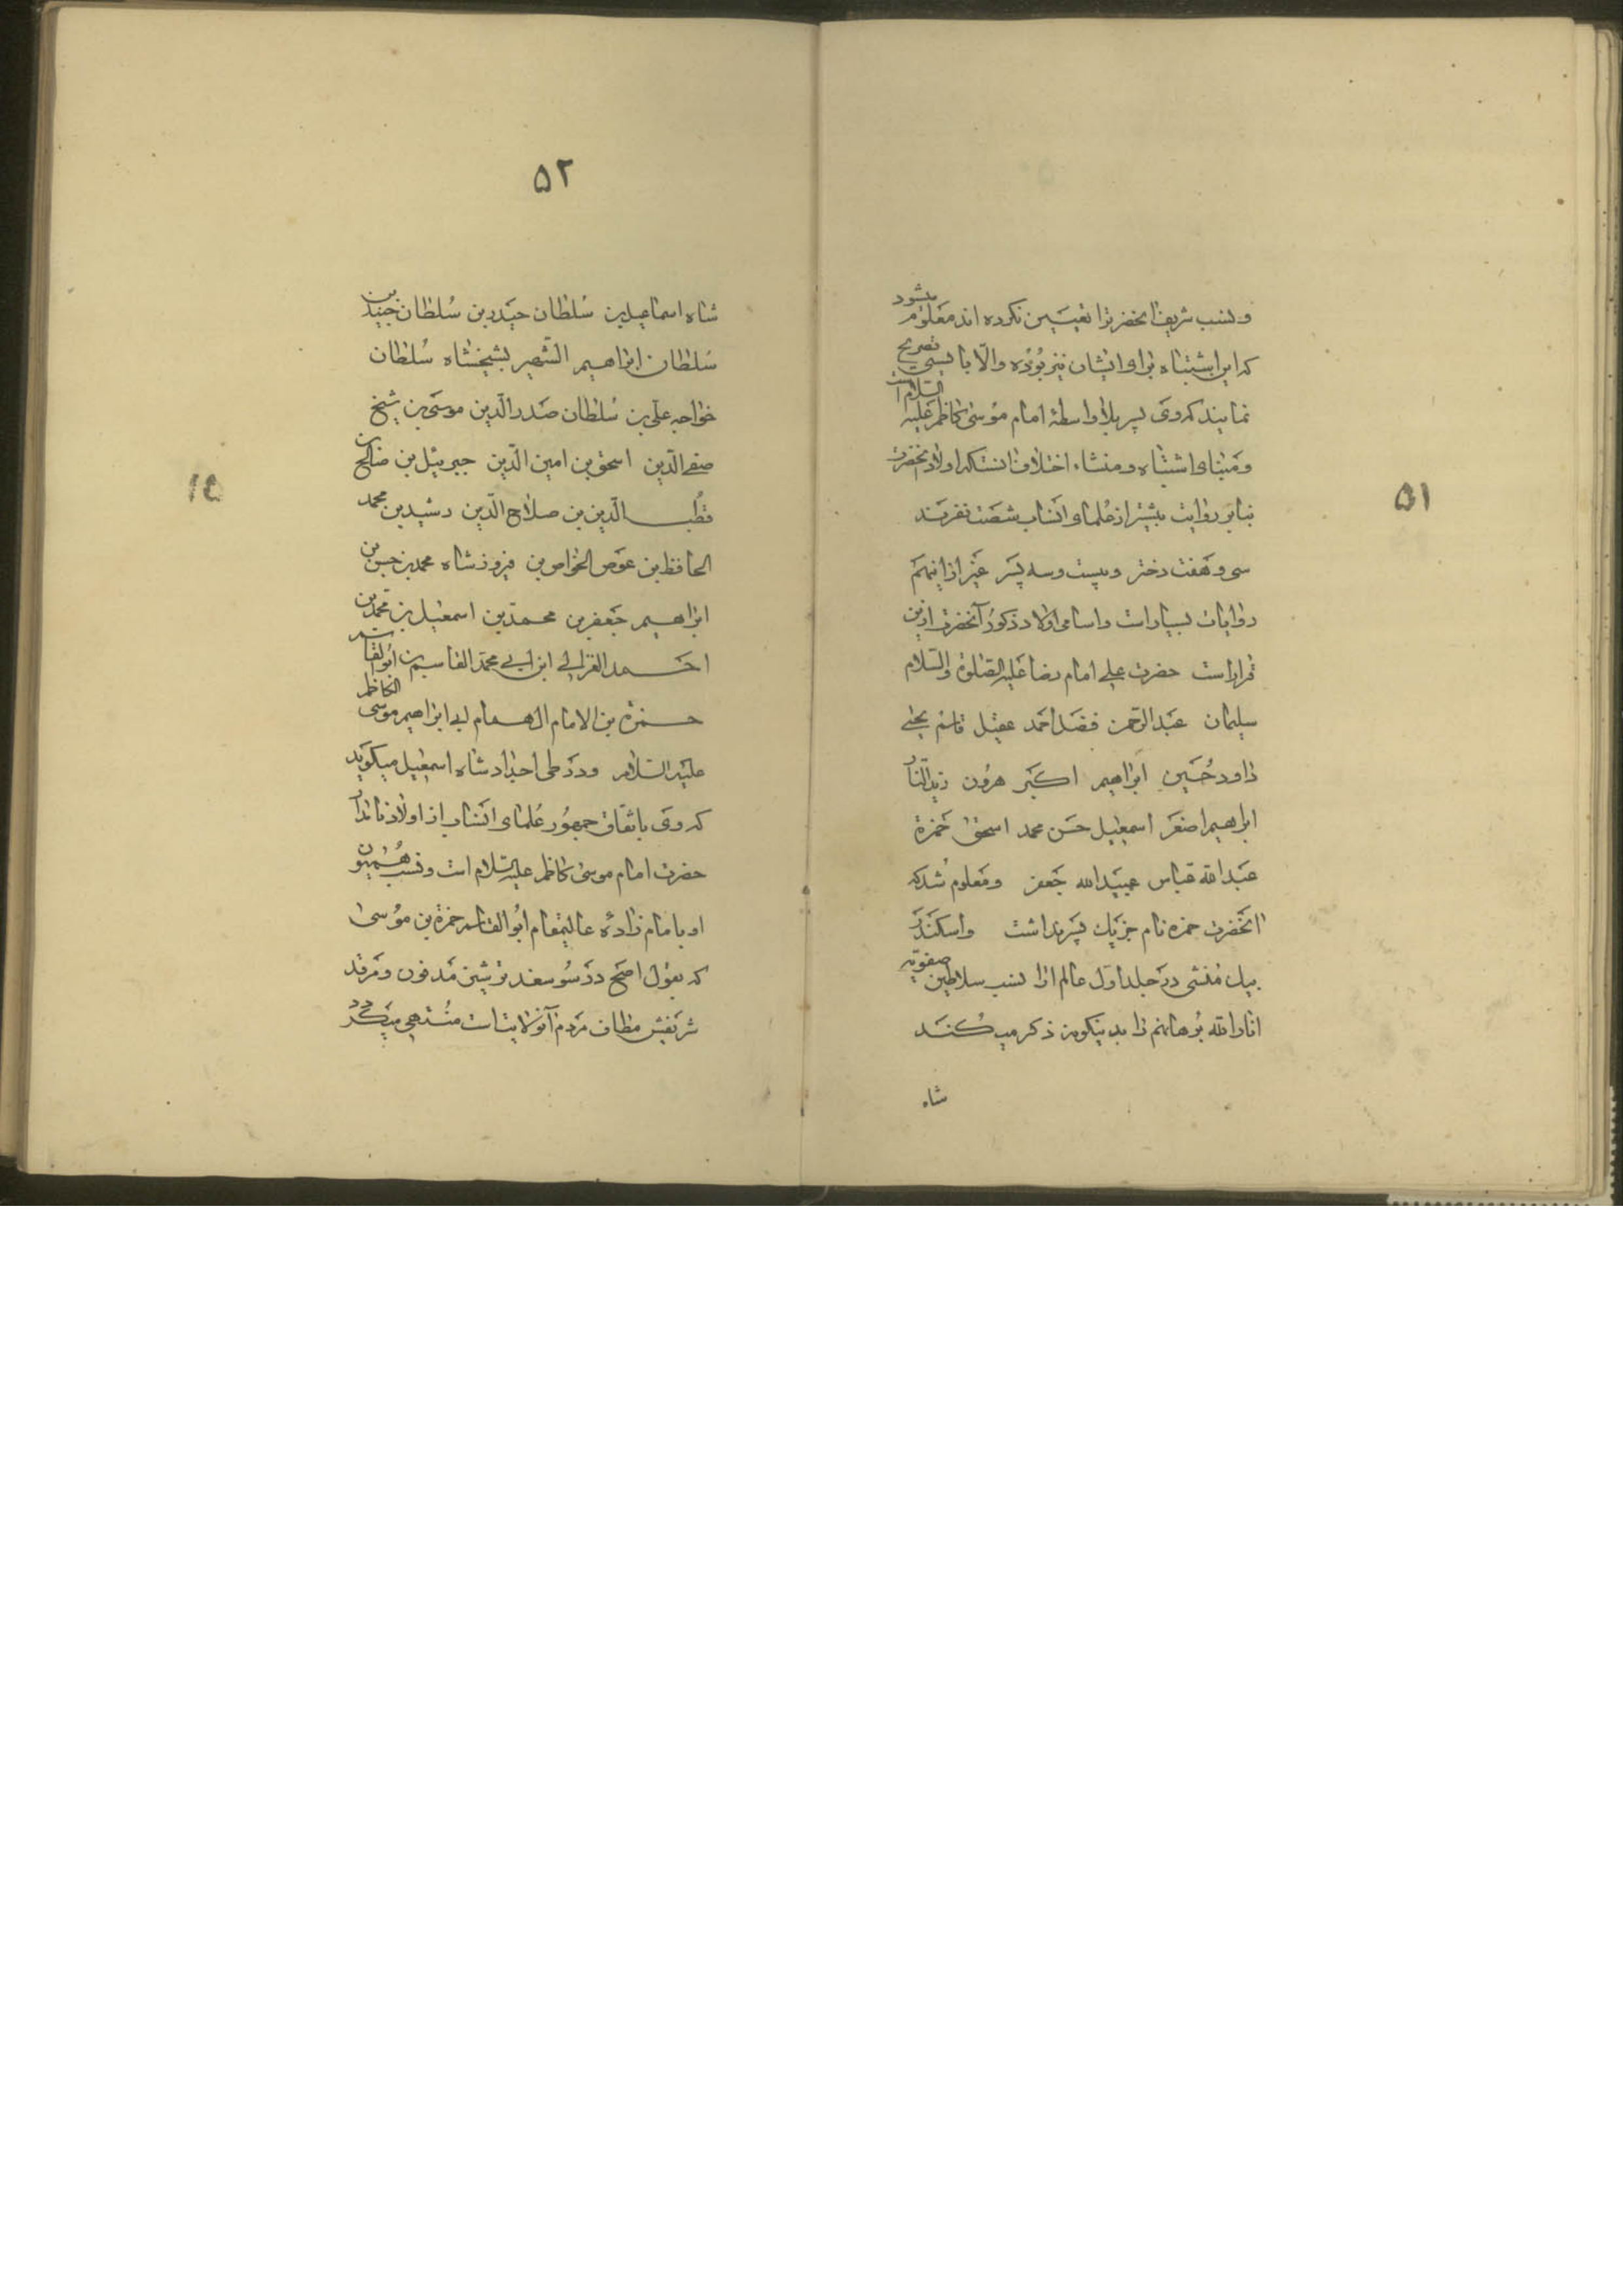 ۵۱
و نسب شریف آنحضرترا تعیین نکرده اند معلوم میشود
که این اشتباه برای ایشان نیز بوده والّا بایستی تصریح
نمایند که وی پسر بلا واسطهٔ امام موسی کاظم علیه السّلام است
و مبنای اشتباه و منشاء اختلاف انستکه اولاد آنحضرت
بنابر روایت بیشتر از علمای انساب شصت نفرند
سی و هفت دختر و بیست و سه پسر غیر از اینهم
روایات بسیار است و اسامی اولاد ذکور آنحضرت ازین
قرار است حضرت علی امام رضا علیه الصّلوة والسّلام
سلیمان عبدالرّحمن فضل احمد عقیل قاسم یحیی
داود حُسَین ابراهیم اکبر هرون زیدالنّار
ابراهیم اصغر اسمعیل حسن محمد اسحق حمزة
عبدالله عباس عبیدالله جعفر و معلوم شد که
آنحضرت حمزه نام جز یک پسر نداشت و اسکندر
بیک منشی در جلد اوّل عالم ارا نسب سلاطین صفویّه
انارالله بُرهانهم را بدینگونه ذکر میکُنَد
شاه
۵۲
شاه اسماعیل بن سُلطان حیدر بن سُلطان جنید بن
سُلطان ابراهیم الشّهیر بشیخشاه سُلطان
خواجه علی بن سُلطان صدرالدّین موسی بن شیخ
صفی الدّین اسحق بن امین الدّین جبرییل بن صالح بن
قطب الدّین بن صلاح الدّین رشید بن محمد
الحافظ بن عوض الخواص بن فیروزشاه محمد بن حسن بن
ابراهیم جعفر بن محمد بن اسمعیل بن محمد بن
احمد العرابی ابن ابی محمد القاسم بن ابوالقاسم
حمزة بن الامام الهمام ابی ابراهیم موسی الکاظم
علیه السّلام و در طی اجداد شاه اسمعیل میگوید
که وی باتّفاق جمهور عُلمای انساب از اولاد نامدار
حضرت امام موسی کاظم علیه السّلام است و نسب هُمیون
او بامام زادهٔ عالیمقام ابُوالقاسم حمزة بن موُسی
که بقول اصح در سُوسفد ترشیز مَدفون و مَرقد
شریفش مطاف مَردم آنولایت است مُنتهی میگردد